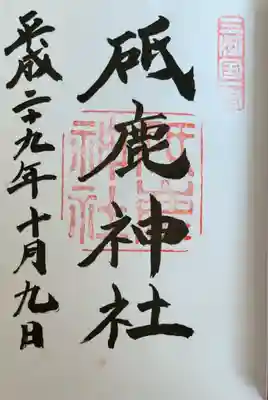 三河國一宮
砥鹿神社
砥鹿神社
平成二十九年十月九日